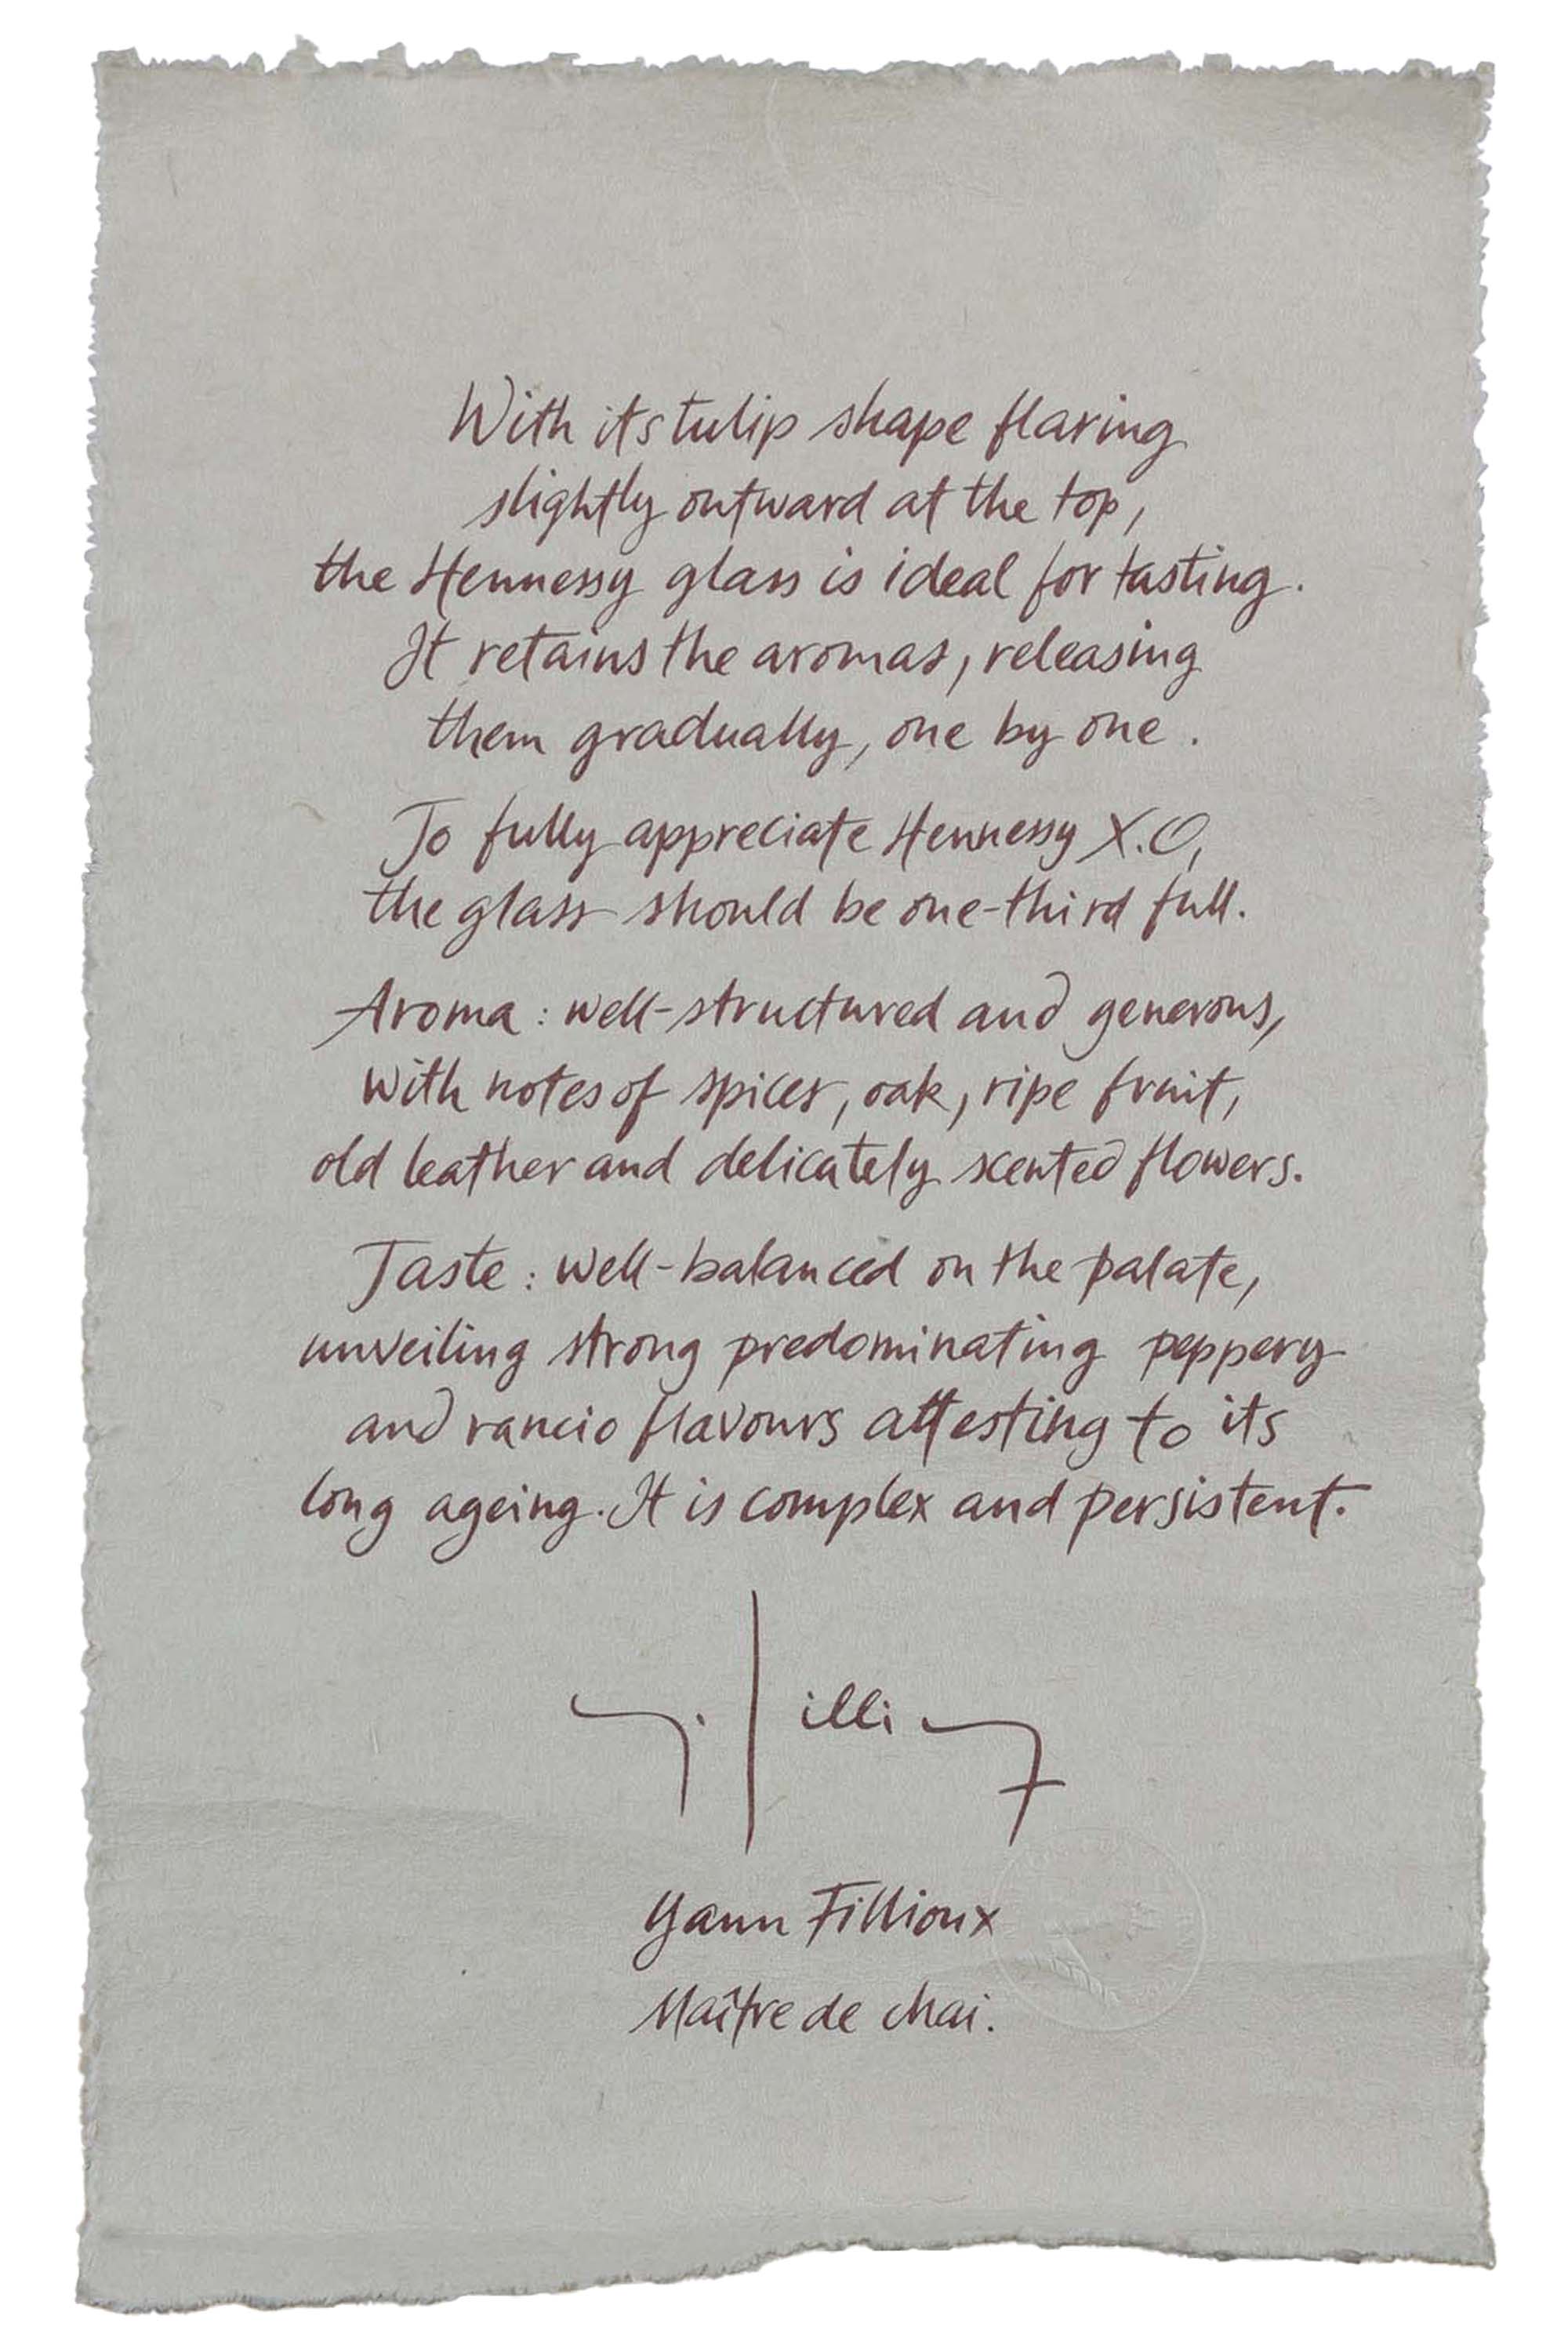 With its tulip shape flaring
slightly outward at the top,
the Hennessy glass is ideal for tasting.
It retains the aromas, releasing
them gradually, one by one.
To fully appreciate Hennessy X.O,
the glass should be one-third full.
Aroma: well-structured and generous,
with notes of spices, oak, ripe fruit,
old leather and delicately scented flowers.
Taste: well-balanced on the palate,
unveiling strong predominating peppery
and rancio flavours attesting to its
long ageing. It is complex and persistent.
Y. Filli
Yann Fillioux
Maître de chai.